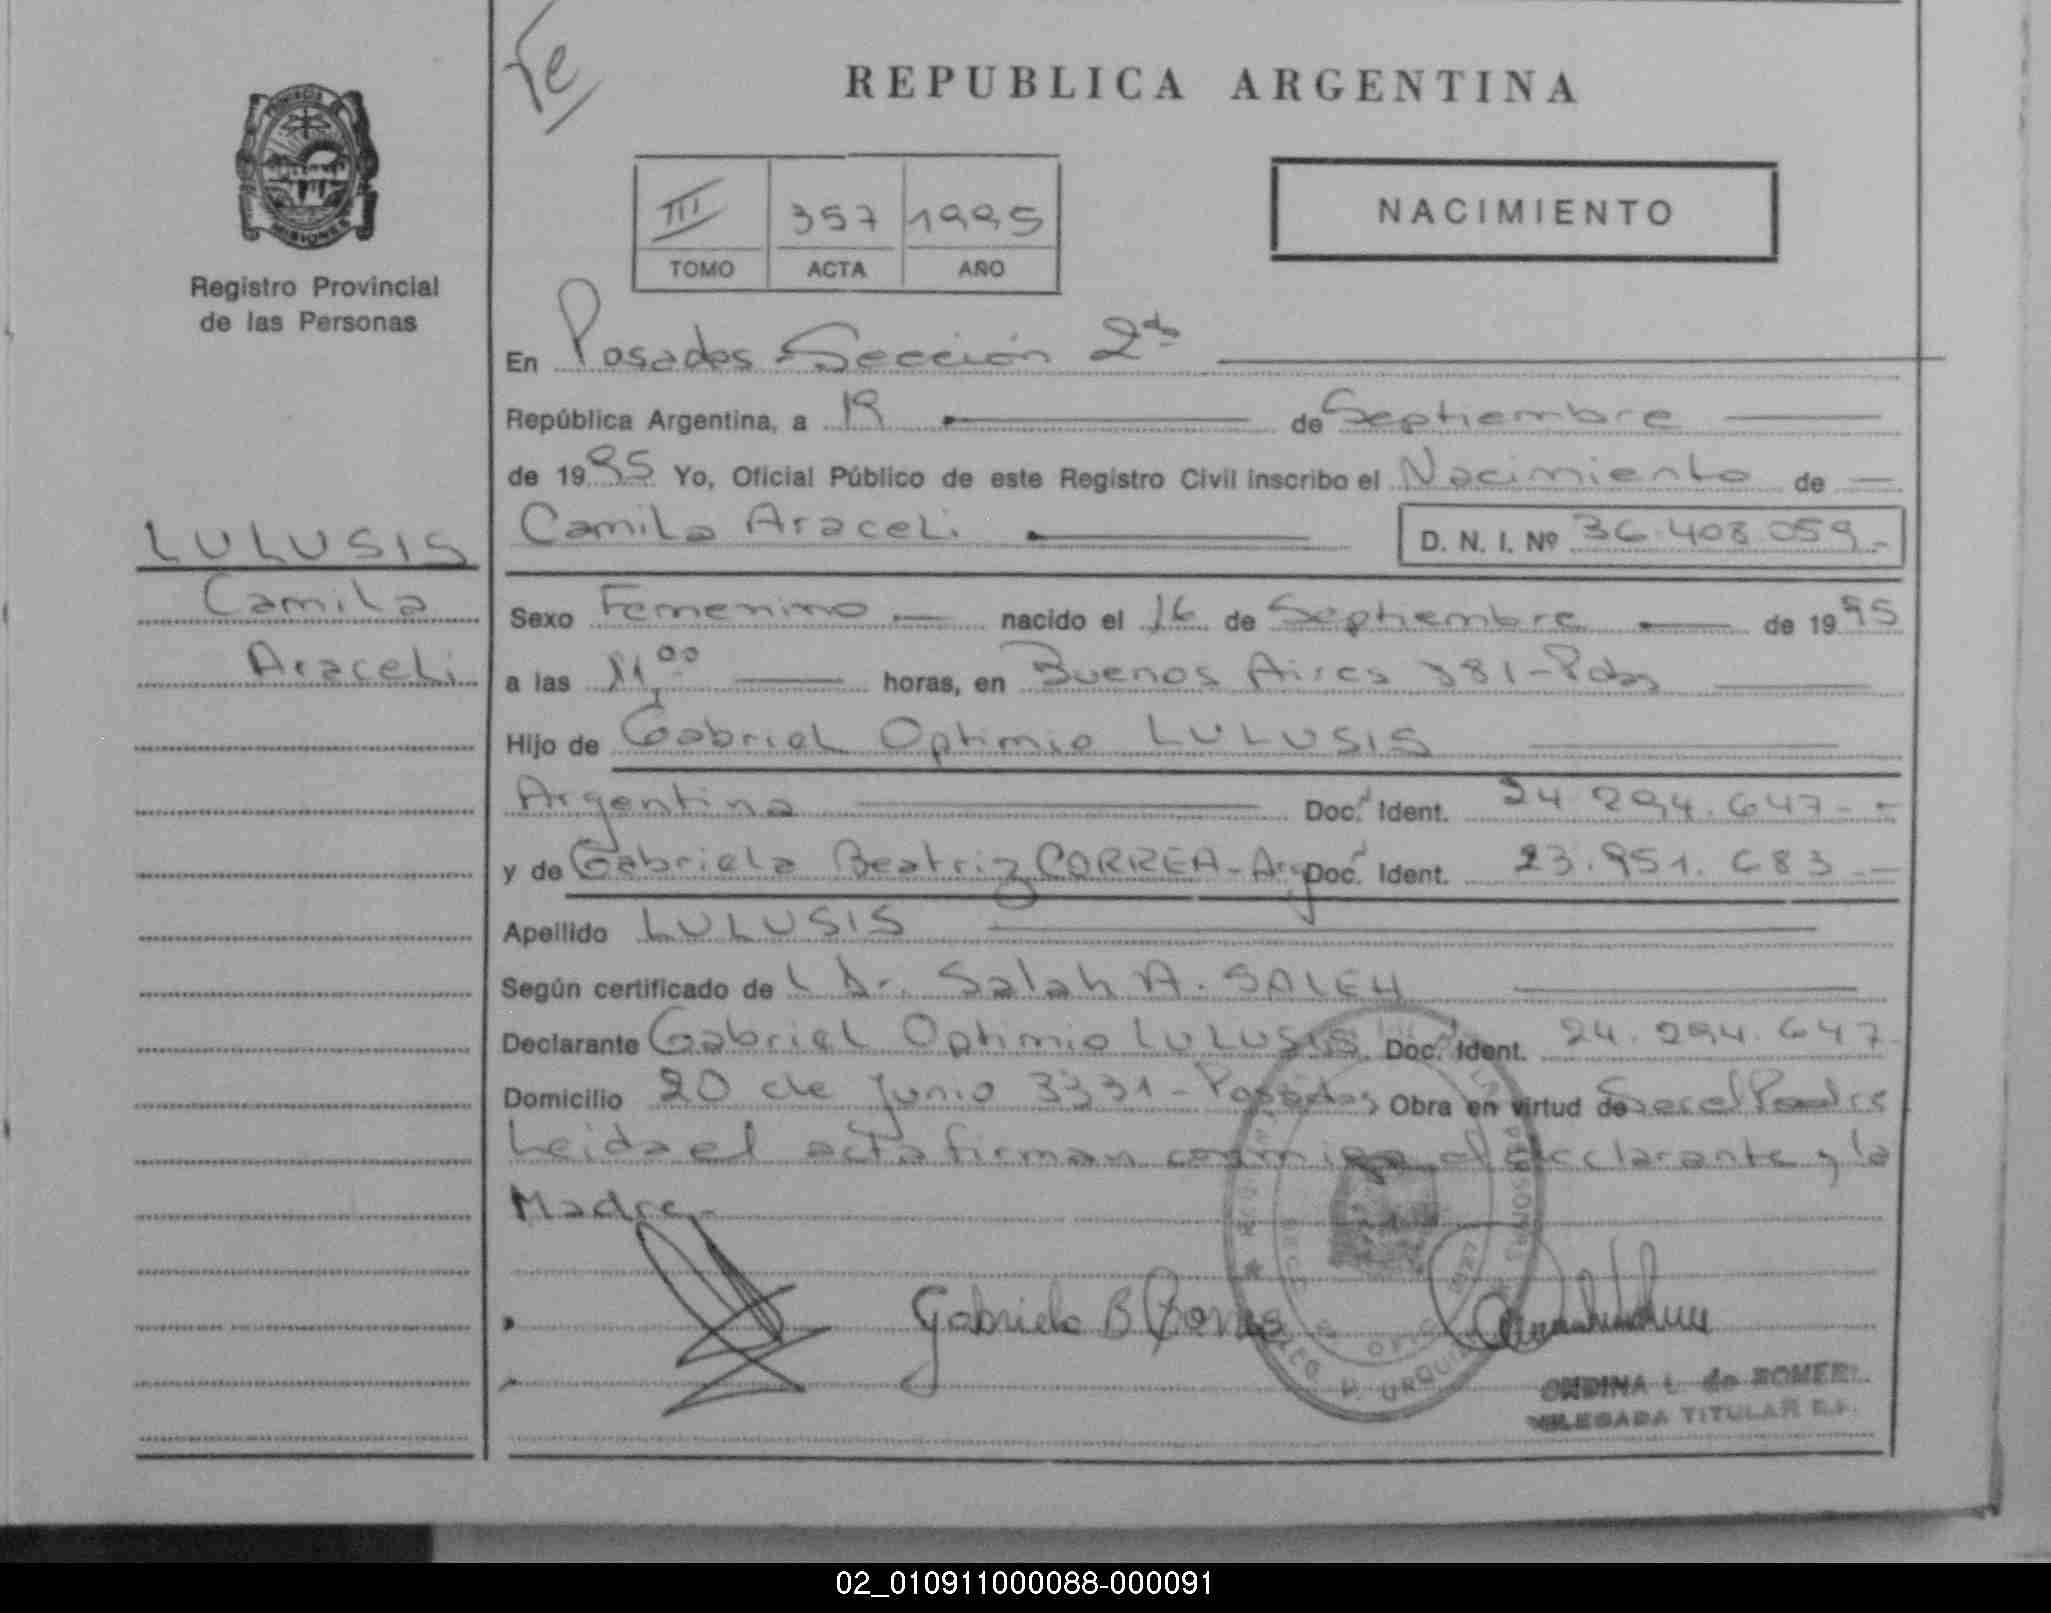 Fe
REPUBLICA ARGENTINA
PROVINCIA DE MISIONES
Registro Provincial
de las Personas
III 357 1995
TOMO ACTA AÑO
NACIMIENTO
En Posadas Sección 2da
República Argentina, a 19 de Septiembre
de 1995 Yo, Oficial Público de este Registro Civil inscribo el Nacimiento de
Camila Araceli D. N. I. Nº 36.408.059.-
LULUSIS
Camila
Araceli
Sexo Femenino nacido el 16 de Septiembre de 1995
a las 11,00 horas, en Buenos Aires 381-Pdas
Hijo de Gabriel Optimio LULUSIS
Argentina Doc. Ident. 24.294.647.-
y de Gabriela Beatriz CORREA-Arg Doc. Ident. 23.951.683.-
Apellido LULUSIS
Según certificado de Dr. Salah A. SALEH
Declarante Gabriel Optimio LULUSIS Doc. Ident. 24.294.647
Domicilio 20 de Junio 3331-Posadas Obra en virtud de Ser el Padre
Leida el acta firman conmigo el declarante y la
Madre.-
Gabriela B
ONDINA L. de ROMERO
DELEGADA TITULAR
02_010911000088-000091